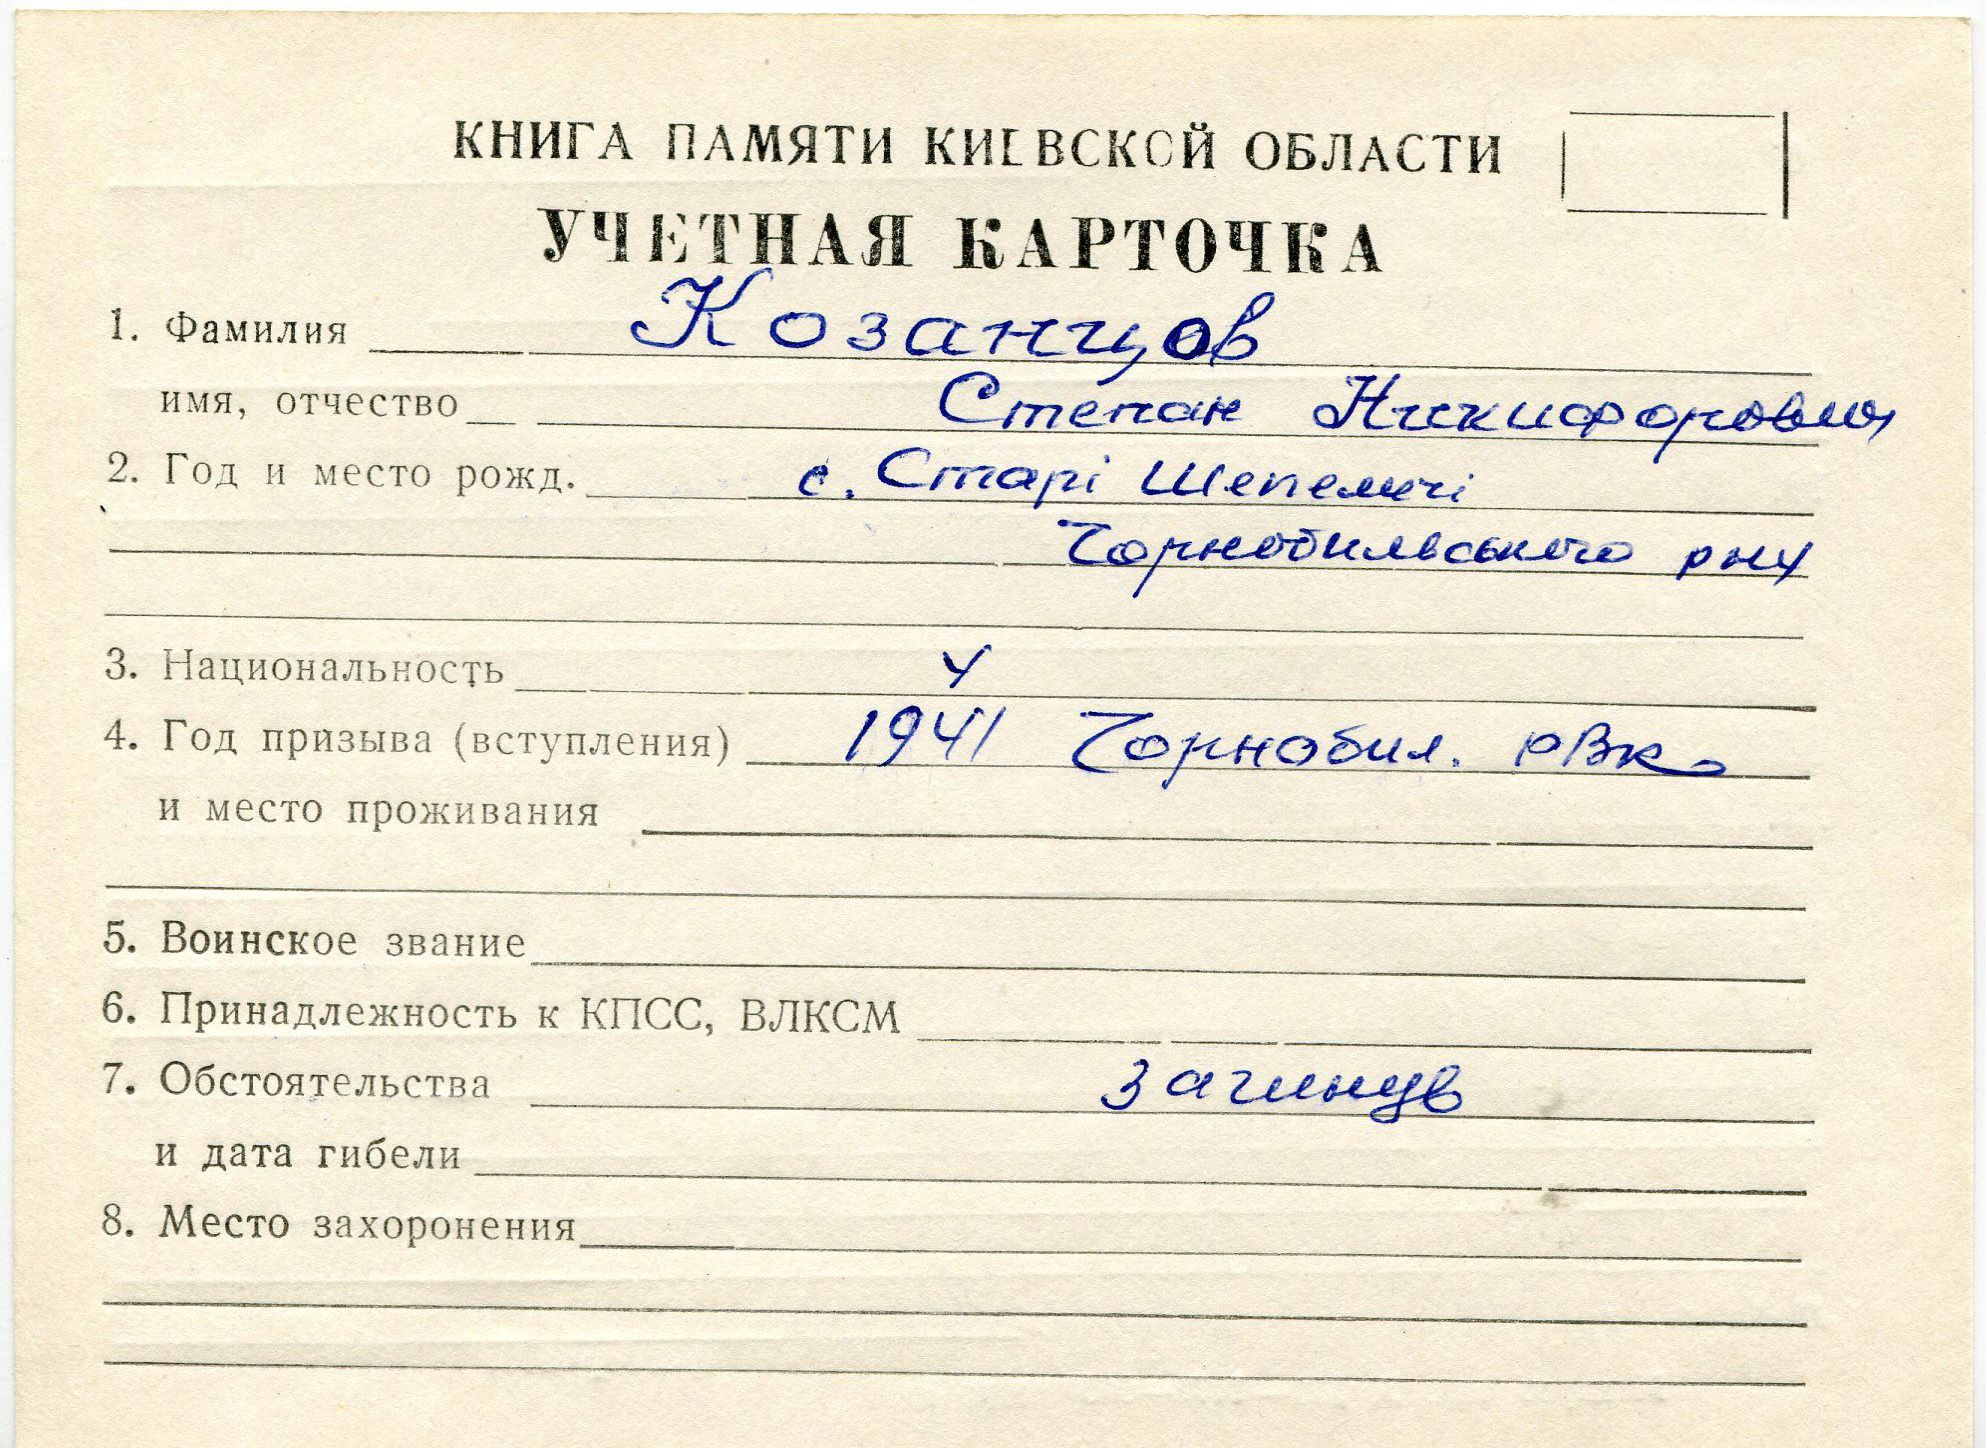 КНИГА ПАМЯТИ КИЕВСКОЙ ОБЛАСТИ
УЧЕТНАЯ КАРТОЧКА
1. Фамилия Козанцов
имя, отчество Степан Никифорович
2. Год и место рожд. с. Старі Шепеличі
Чорнобильського р-ну
3. Национальность у
4. Год призыва (вступления) 1941 Чорнобил. РВК
и место проживания
5. Воинское звание
6. Принадлежность к КПСС, ВЛКСМ
7. Обстоятельства загинув
и дата гибели
8. Место захоронения